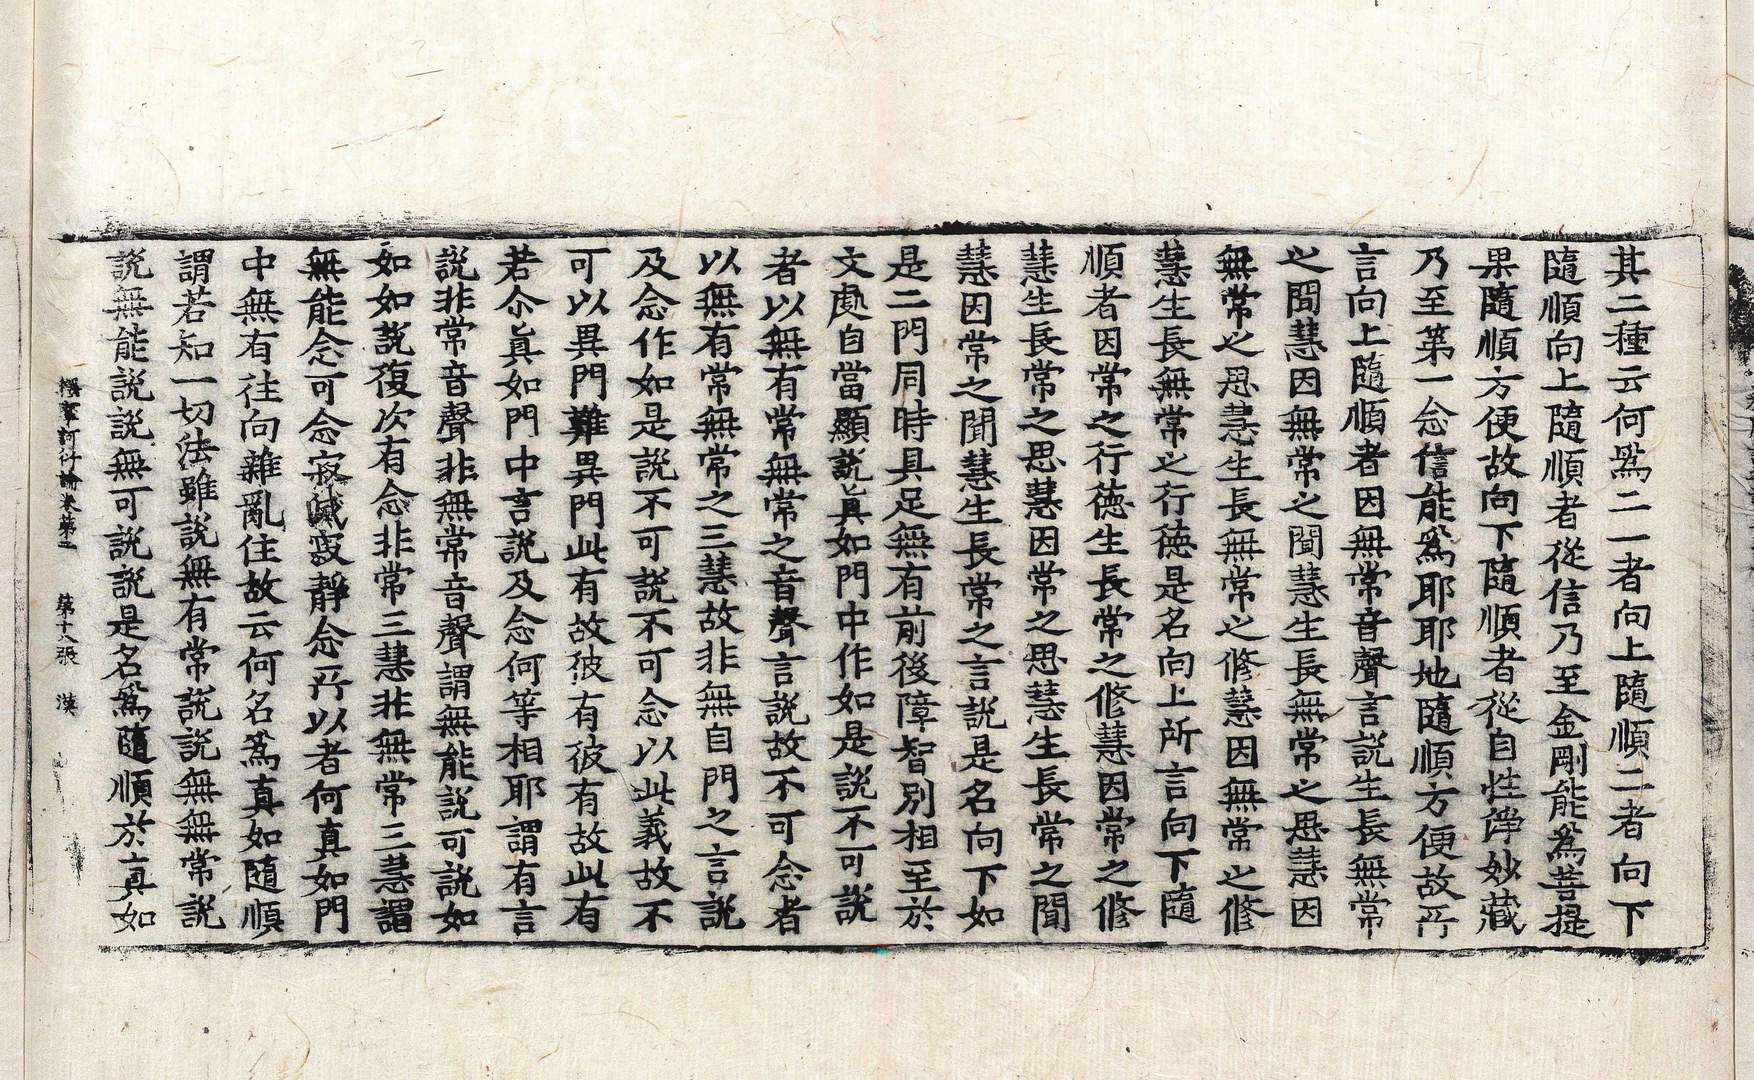 其二種云何爲二一者向上隨順二者向下
隨順向上隨順者從信乃至金剛能爲菩提
果隨順方便故向下隨順者從自性淨妙藏
乃至第一念信能爲耶耶地隨順方便故所
言向上隨順者因無常音聲言說生長無常
之聞慧因無常之聞慧生長無常之思慧因
無常之思慧生長無常之修慧因無常之修
慧生長無常之行德是名向上所言向下隨
順者因常之行德生長常之修慧因常之修
慧生長常之思慧因常之思慧生長常之聞
慧因常之聞慧生長常之言說是名向下如
是二門同時具足無有前後障智別相至於
文處自當顯說真如門中作如是說不可說
者以無有常無常之音聲言說故不可念者
以無有常無常之三慧故非無自門之言說
及念作如是說不可說不可念以此義故不
可以異門難異門此有故彼有彼有故此有
若尒真如門中言說及念何等相耶謂有言
說非常音聲非無常音聲謂無能說可說如
如如說復次有念非常三慧非無常三慧謂
無能念可念寂滅寂靜念所以者何真如門
中無有往向雜亂住故云何名爲真如隨順
謂若知一切法雖說無有常說說無無常說
說無能說說無可說說是名爲隨順於真如
釋摩訶衍論卷第二　第十八張　漢